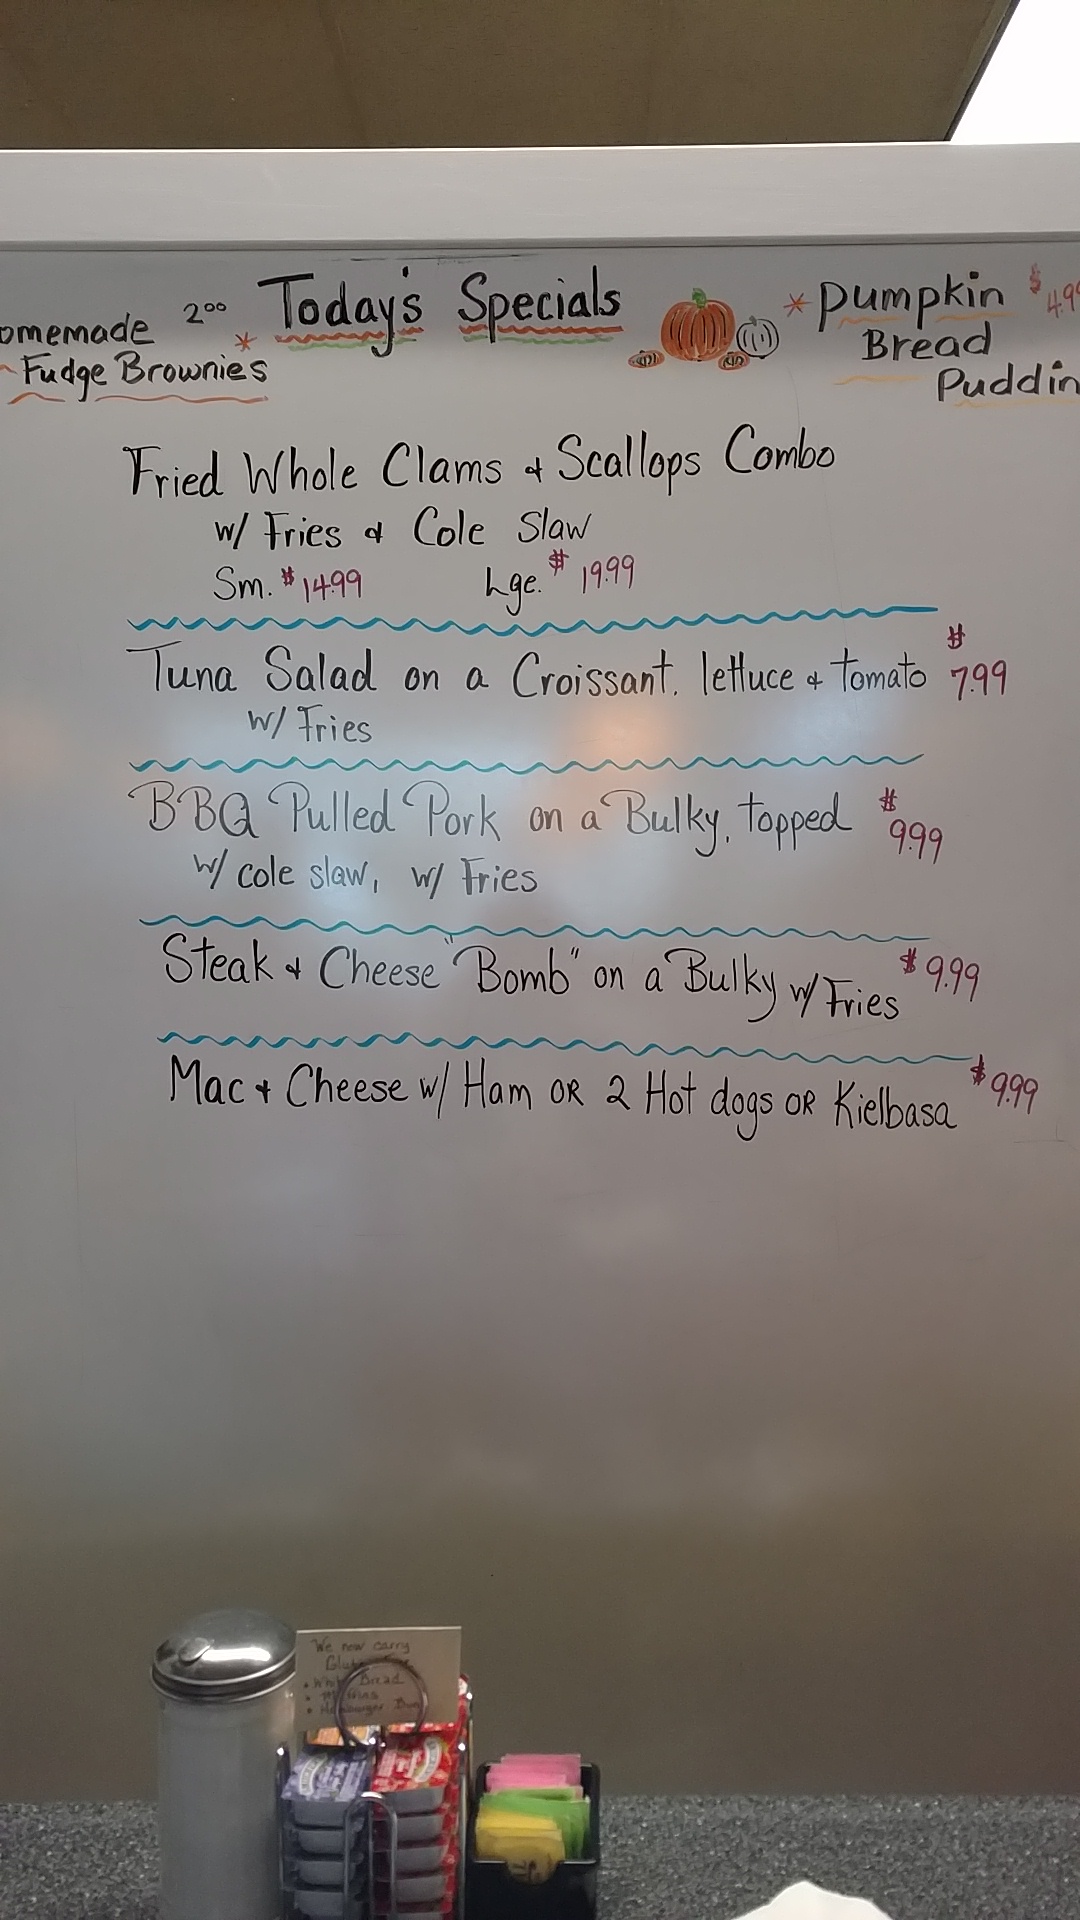 omemade 2⁰⁰
Fudge Brownies
Today's Specials
* Pumpkin $4.99
Bread
Puddin
Fried Whole Clams & Scallops Combo
w/ Fries & Cole Slaw
Sm. $14.99 Lge. $19.99
Tuna Salad on a Croissant, lettuce & tomato $7.99
w/ Fries
BBQ Pulled Pork on a Bulky, topped $9.99
w/ cole slaw, w/ Fries
Steak & Cheese "Bomb" on a Bulky w/ Fries $9.99
Mac & Cheese w/ Ham OR 2 Hot dogs OR Kielbasa $9.99
We now carry
Bread